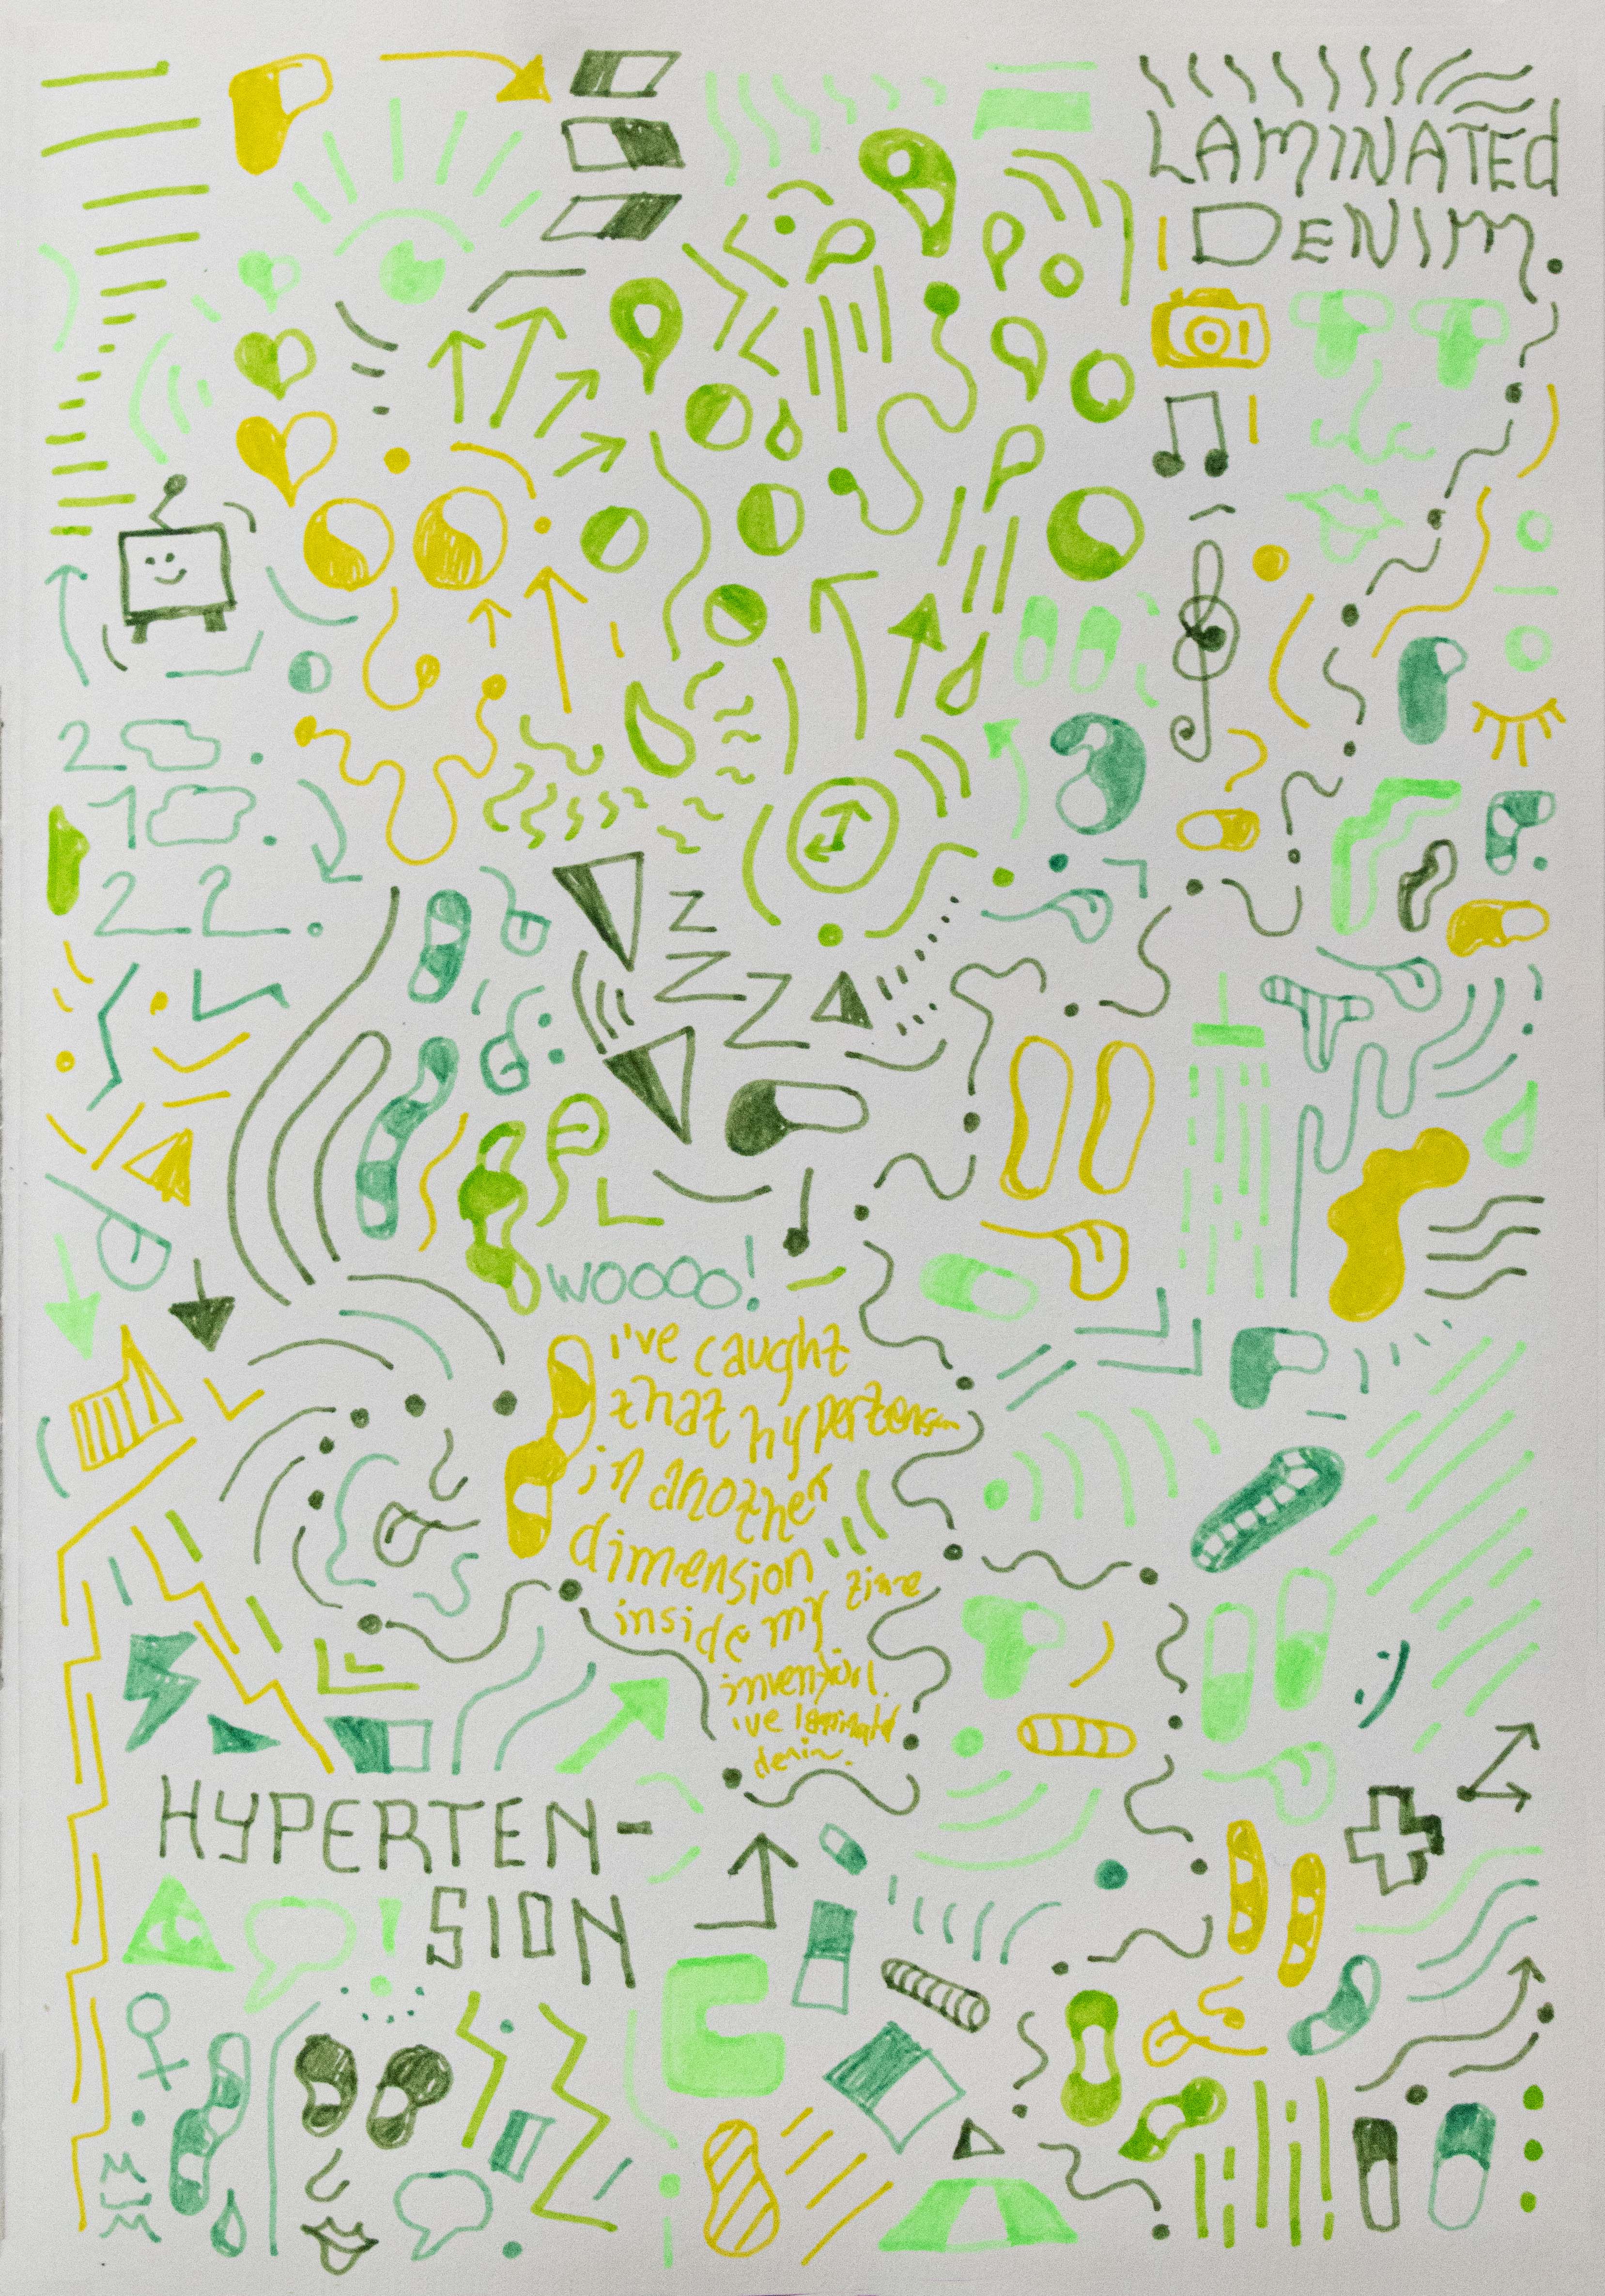 LAMINATEd
DENIM.
20.
10.
22.
Z
Z
Z
WOOOO!
i've caught
that hypertension
in another
dimension
inside my time
invention.
i've laminated
denim.
HYPERTEN-
SION
!